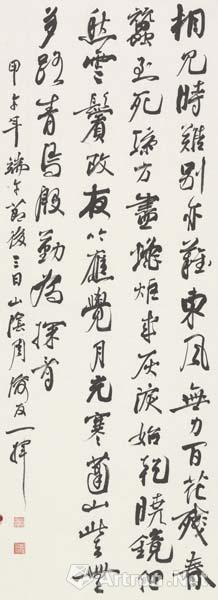 相見時難別亦難東風無力百花殘春
蠶到死絲方盡蠟炬成灰淚始乾曉鏡但
愁雲鬢改夜吟應覺月光寒蓬山此去無
多路青鳥殷勤為探看
甲午年端午節後三日山陰周友一揮
Artron.Net